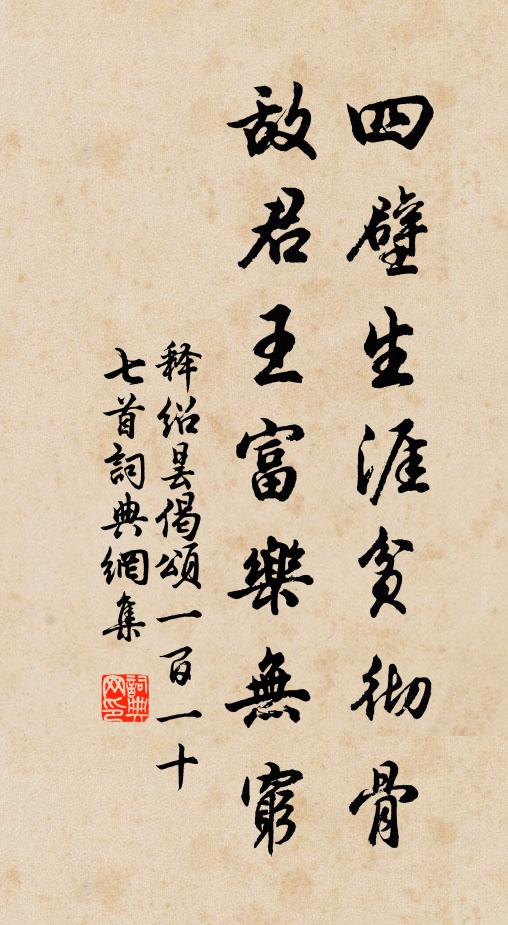 四壁生涯貧彻骨
敌君王富樂無窮
释绍昙偈頌一百一十
七首詞典網集
詞典网印